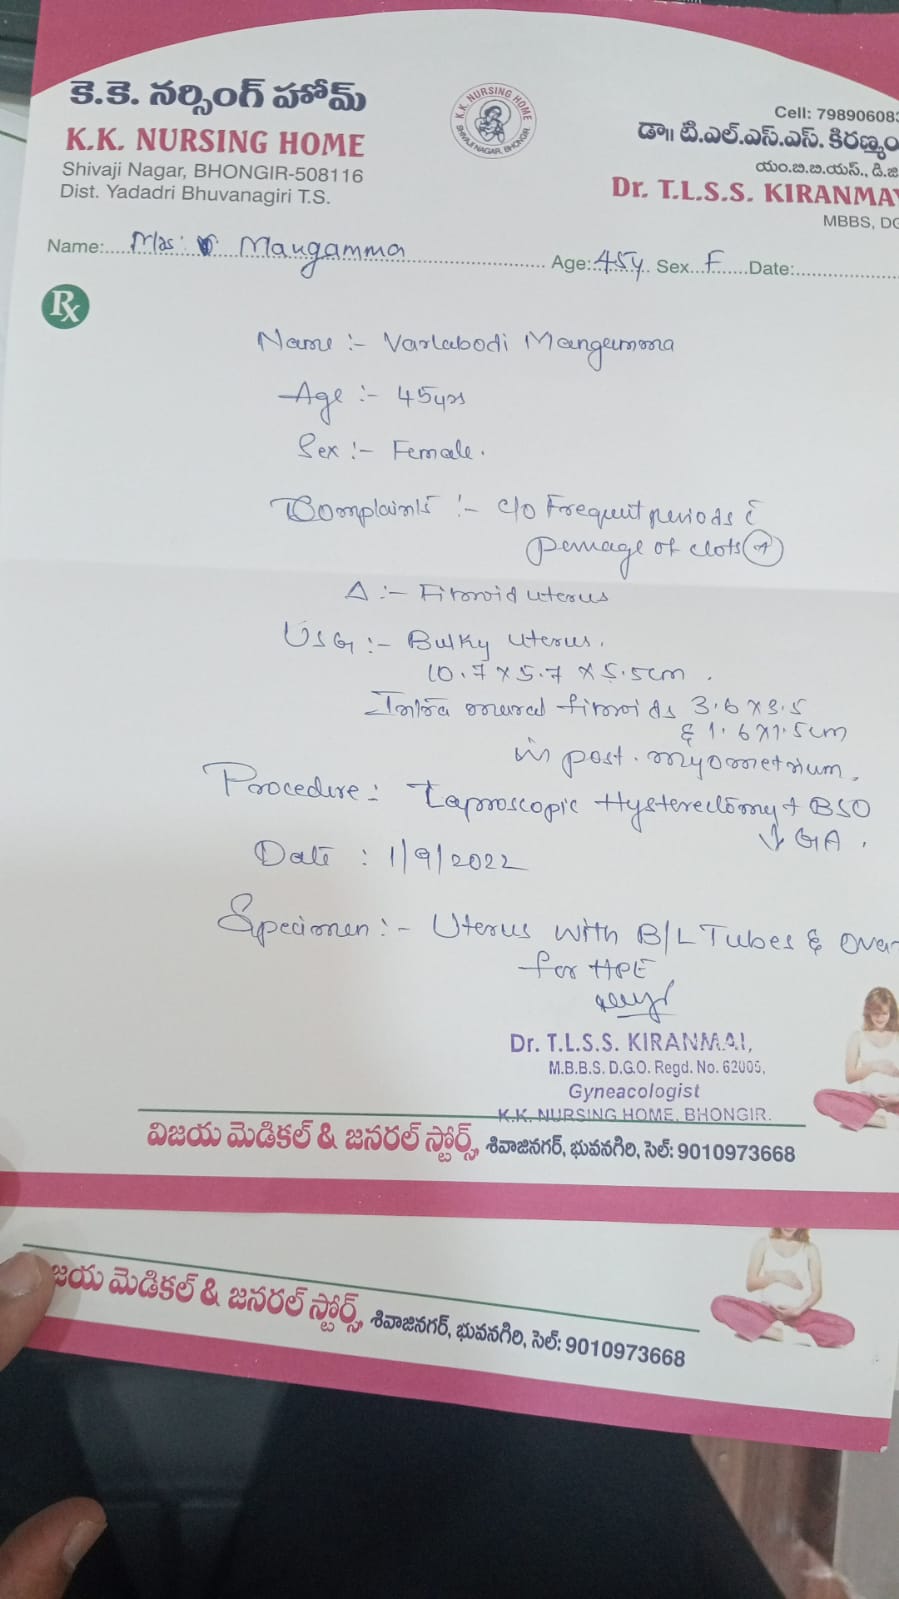 కె.కె. నర్సింగ్ హోమ్
K.K. NURSING HOME
Shivaji Nagar, BHONGIR-508116
Dist. Yadadri Bhuvanagiri T.S.
K.K. NURSING HOME
SHIVAJI NAGAR, BHONGIR
Cell: 79890608
డా॥ టి.ఎల్.ఎస్.ఎస్. కిరణ్మ
యం.బి.బి.యస్., డి.జి
Dr. T.L.S.S. KIRANMA
MBBS, DG
Name: Mrs: Mangamma Age: 45y Sex F Date:
Rx
Name :- Varlabodi Mangamma
Age :- 45yrs
Sex :- Female.
Complaints :- c/o Frequent periods c̄
passage of clots
Δ :- Fibroid uterus
USG :- Bulky uterus.
10.7 x 5.7 x 5.5cm.
Intra mural fibroids 3.6 x 3.5
& 1.6 x 1.5cm
in post. myometrium.
Procedure: Laproscopic Hysterectomy + BSO
↓ GA.
Date : 1/9/2022
Specimen :- Uterus with B/L Tubes & Ova
for HPE
Dr. T.L.S.S. KIRANMAI,
M.B.B.S. D.G.O. Regd. No. 62005,
Gyneacologist
K.K. NURSING HOME, BHONGIR.
విజయ మెడికల్ & జనరల్ స్టోర్స్, శివాజినగర్, భువనగిరి, సెల్: 9010973668
జయ మెడికల్ & జనరల్ స్టోర్స్, శివాజినగర్, భువనగిరి, సెల్: 9010973668